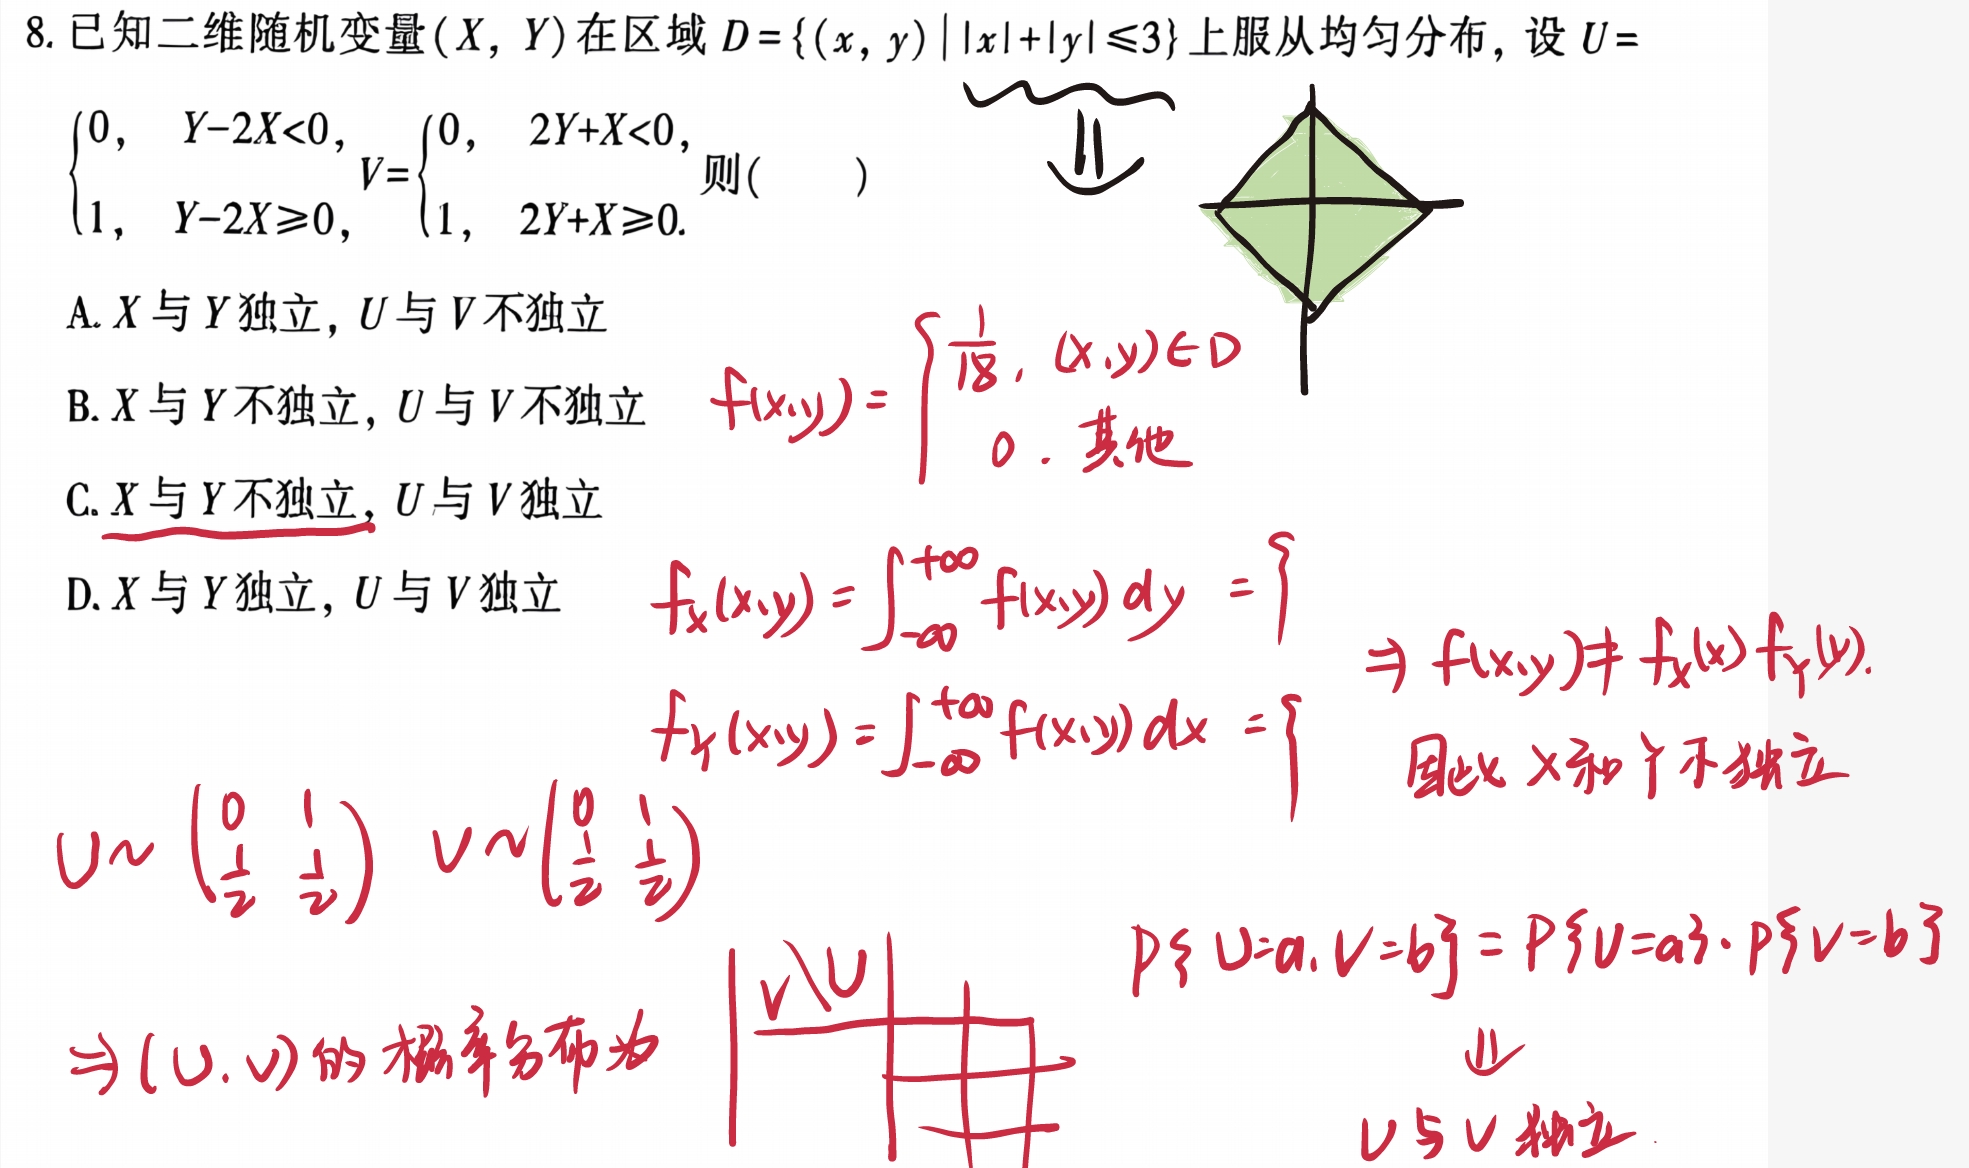 8. 已知二维随机变量(X, Y)在区域 D={(x, y)||x|+|y|≤3}上服从均匀分布, 设 U=
{0, Y-2X<0, 1, Y-2X≥0, V={0, 2Y+X<0, 1, 2Y+X≥0. 则( )
A. X 与 Y 独立, U 与 V 不独立
B. X 与 Y 不独立, U 与 V 不独立
C. X 与 Y 不独立, U 与 V 独立
D. X 与 Y 独立, U 与 V 独立
f(x,y)={1/18, (x,y)∈D
0. 其他
f_X(x,y)=∫_{-∞}^{+∞} f(x,y) dy = {
f_Y(x,y)=∫_{-∞}^{+∞} f(x,y) dx = {
⇒ f(x,y)≠f_X(x) f_Y(y).
因此 X和Y不独立
U~(0 1 1/2 1/2) V~(0 1 1/2 1/2)
⇒(U,V)的概率分布为
V\U
P{U=a, V=b}=P{U=a}·P{V=b}
⇓
U与V 独立